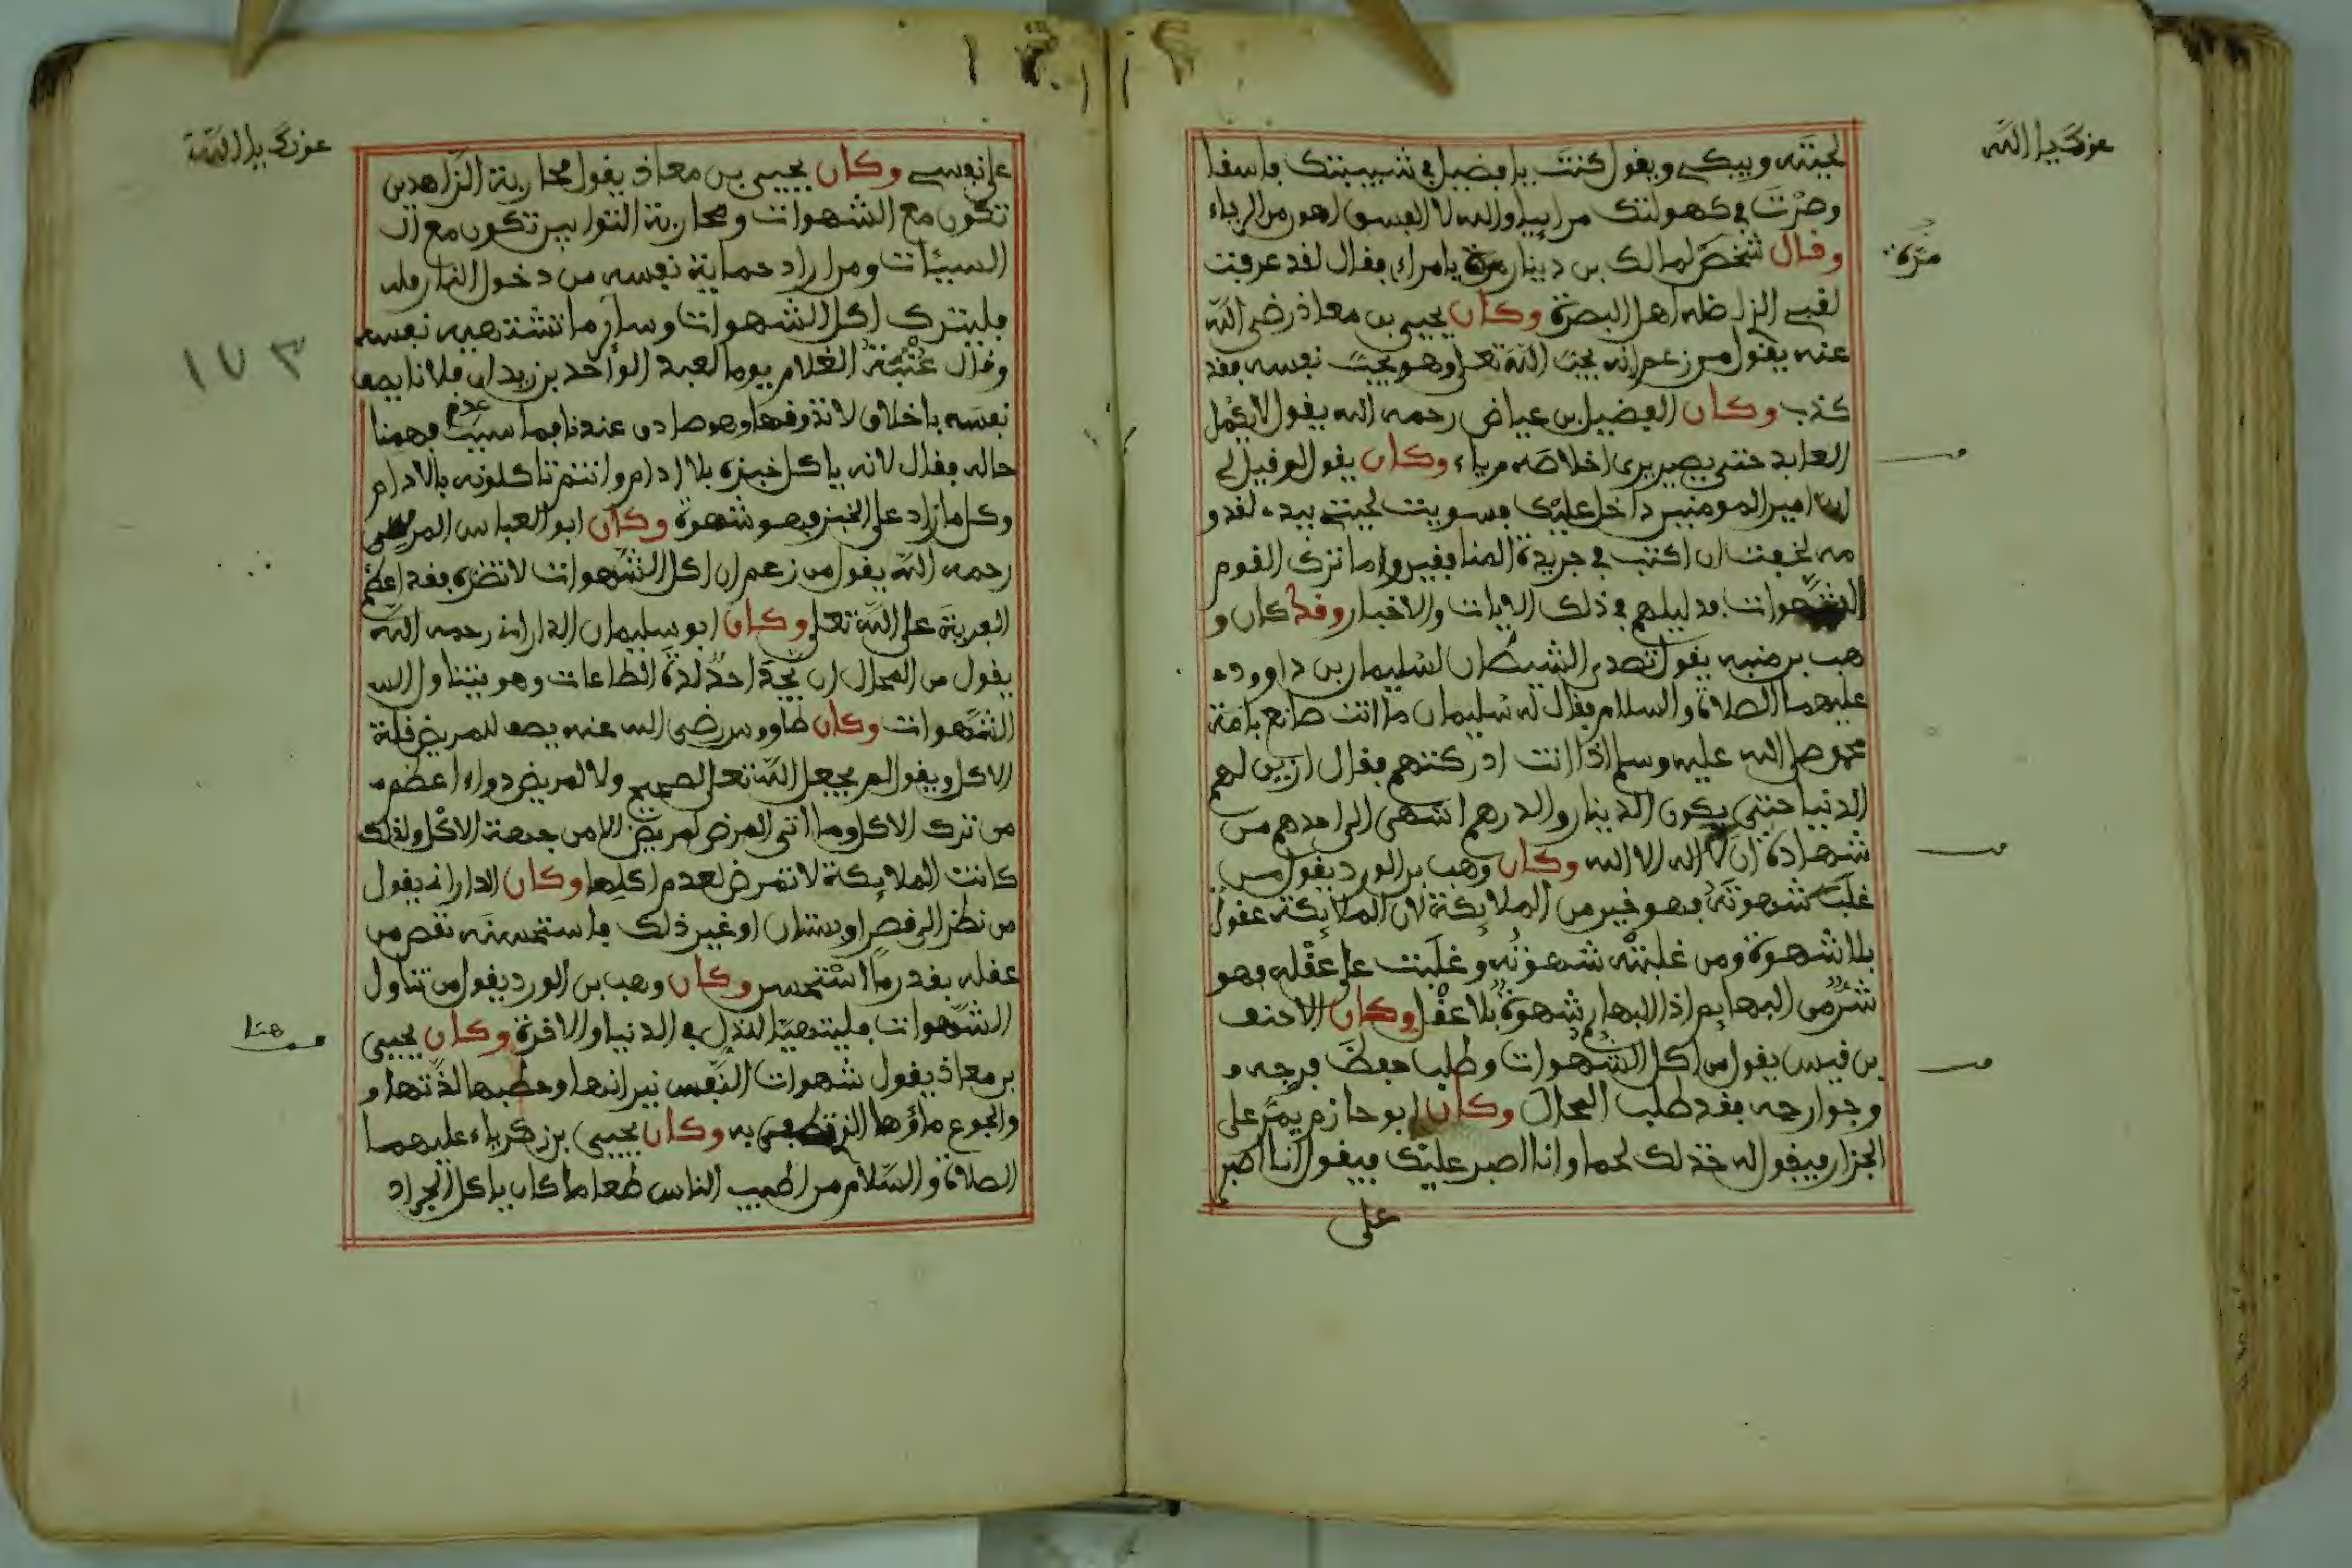 عونك يا الله
لحيته ويبكي ويقول كنت يا فضيل في شبيبتك فاسقا
وصرت في كهولتك مرائيا والله لا الفسق اهون من الرياء
وقال شخص لمالك بن دينار يا مراءي فقال لقد عرفت
مرة
لقبي الذي اضله اهل البصرة وكان يحيى بن معاذ رضي الله
عنه يقول من زعم انه يحب الله تعلى وهو يحب نفسه فقد
كذب وكان الفضيل بن عياض رحمه الله يقول لا يكمل
العابد حتى يصير يرى اخلاصه رياء وكان يقول لو قيل لي
ان امير المومنين داخل عليك فسويت لحيتي بيده لقد و
مه لخفت ان اكتب في جريدة المنافقين واما ترك القوم
الشهوات فدليلهم في ذلك الايات والاخبار وقد كان و
هب بن منبه يقول تصدى الشيطان لسليمان بن داوود
عليهما الصلاة والسلام فقال له سليمان ما انت صانع بامة
محمد صلى الله عليه وسلم اذا انت ادركتهم فقال ازين لهم
الدنيا حتى يكون الدينار والدرهم اشهى الى احدهم من
شهادة ان لا اله الا الله وكان وهب بن الورد يقول من
غلب شهوته فهو خير من الملايكة لان الملايكة عقول
بلا شهوة ومن غلبته شهوته وغلبت على عقله فهو
شر من البهايم اذ البهايم شهوة بلا عقل وكان الاحنف
بن قيس يقول من اكل الشهوات وطلب حفظ فرجه و
وجوارحه فقد طلب المحال وكان ابو حازم يمر على
الجزار فيقول له خذ لك لحما وانا اصبر عليك فيقول انا اصبر
على
عونك يا الله
على نفسي وكان يحيى بن معاذ يقول محاربة الزاهدين
تكون مع الشهوات ومحاربة التوابين تكون مع ال
السيئات ومن اراد حماية نفسه من دخول النار فله
فليترك اكل الشهوات وساير ما تشتهيه نفسه
١٧٣
وقال عتبة الغلام يوما لعبد الواحد بن زيد ان فلانا يصف
نفسه باخلاق لا نذوقها وهو صادق عندنا فما سبب عدم فهمنا
حاله فقال لانه ياكل خبزه بلا ادام وانتم تاكلونه بالادام
وكل ما زاد على الخبز فهو شهوة وكان ابو العباس المرسي
رحمه الله يقول من زعم ان اكل الشهوات لا تضره فقد اعظم
الفرية على الله تعلى وكان ابو سليمان الداراني رحمه الله
يقول من المحال ان يجد احد لذة الطاعات وهو يتناول الـ
الشهوات وكان طاووس رضي الله عنه يصف للمريض قلة
الاكل ويقول لم يجعل الله تعلى لصحيح ولا لمريض دواء اعظم
من ترك الاكل وما اتى المرض لمريض الا من جهة الاكل ولذلك
كانت الملايكة لا تمرض لعدم اكلها وكان الداراني يقول
من نظر الى قصر او بستان او غير ذلك فاستحسنه نقص من
عقله بقدر ما استحسن وكان وهب بن الورد يقول من تناول
الشهوات فليتهيا للذل في الدنيا والاخرة وكان يحيى
هنا
بن معاذ يقول شهوات النفس نيرانها وحطبها لذتها و
والجوع ماؤها الذي تطفى به وكان يحيى بن زكرياء عليهما
الصلاة والسلام من اطيب الناس طعاما كان ياكل الجراد